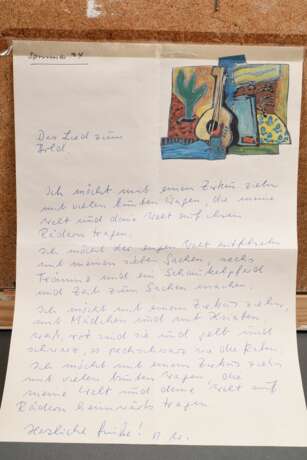 Sommer 94
Das Lied zum
Bild
Ich möcht mit einem Zirkus ziehn
mit vielen bunten Wagen, die meine
Welt und deine Welt auf ihren
Rädern tragen.
Ich möcht der engen Welt entfliehn
mit meinen sieben Sachen, sechs
Träume und ein Schaukelpferd
und Zeit zum Lachen machen.
Ich möcht mit einem Zirkus ziehn,
mit Mädchen und mit Hunden
rot sind sie und gelb und
schwarz, so pechschwarz wie die Raben.
Ich möcht mit einem Zirkus ziehn
mit vielen bunten Wagen, die
meine Welt und deine Welt auf
Rädern heimwärts tragen
Herzliche Grüße!